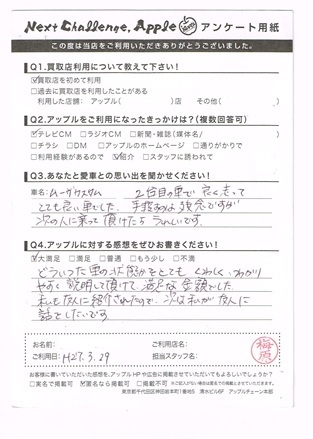 Next Challenge, Apple アンケート用紙
この度は当店をご利用いただきありがとうございました。
Q1.買取店利用について教えて下さい！
☑買取店を初めて利用
□過去に買取店を利用したことがある
利用した店舗： アップル（ ）店 その他（ ）
Q2.アップルをご利用になったきっかけは？（複数回答可）
☑テレビCM □ラジオCM □新聞・雑誌（媒体名/ ）
□チラシ □DM □アップルのホームページ □通りがかりで
□利用経験があるので ☑紹介 □スタッフに誘われて
Q3.あなたと愛車との思い出を聞かせください！
車名：ムーヴカスタム 2台目の車で 良く走って
とても良い車でした。手放すのは残念ですが
次の人に乗って頂けたら うれしいです。
Q4.アップルに対する感想をぜひお書きください！
☑大満足 □満足 □普通 □もう少し □不満
どういった車の状態かをとても くわしく、わかり
やすく説明して頂けて、満足な金額でした。
私も友人に紹介されたので、次は私が友人に
話をしたいです。
お名前： ご利用店名：
ご利用日： H27.3.29 担当スタッフ名：
お客様に書いていただいた感想を、アップルHPや広告に掲載させていただいてもよろしいでしょうか？
□実名で掲載可 ☑匿名なら掲載可 □掲載不可
東京都千代田区神田岩本町1番地 清水ビル6F アップルチェーン本部